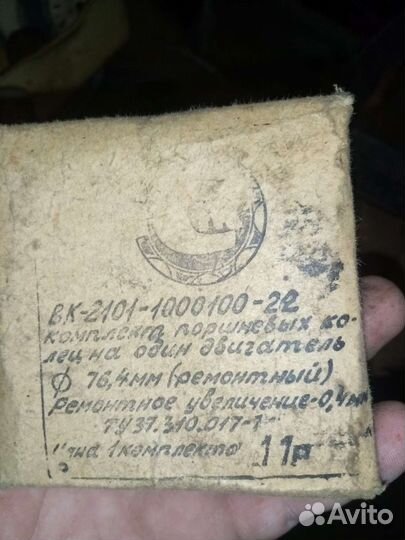 ВК-2101-1000100-22
комплект поршневых ко-
лец на один двигатель
Ф 76,4мм (ремонтный)
Ремонтное увеличение-0,4мм
ТУ37.310.017-1
Цена 1 комплекта 11р
Avito